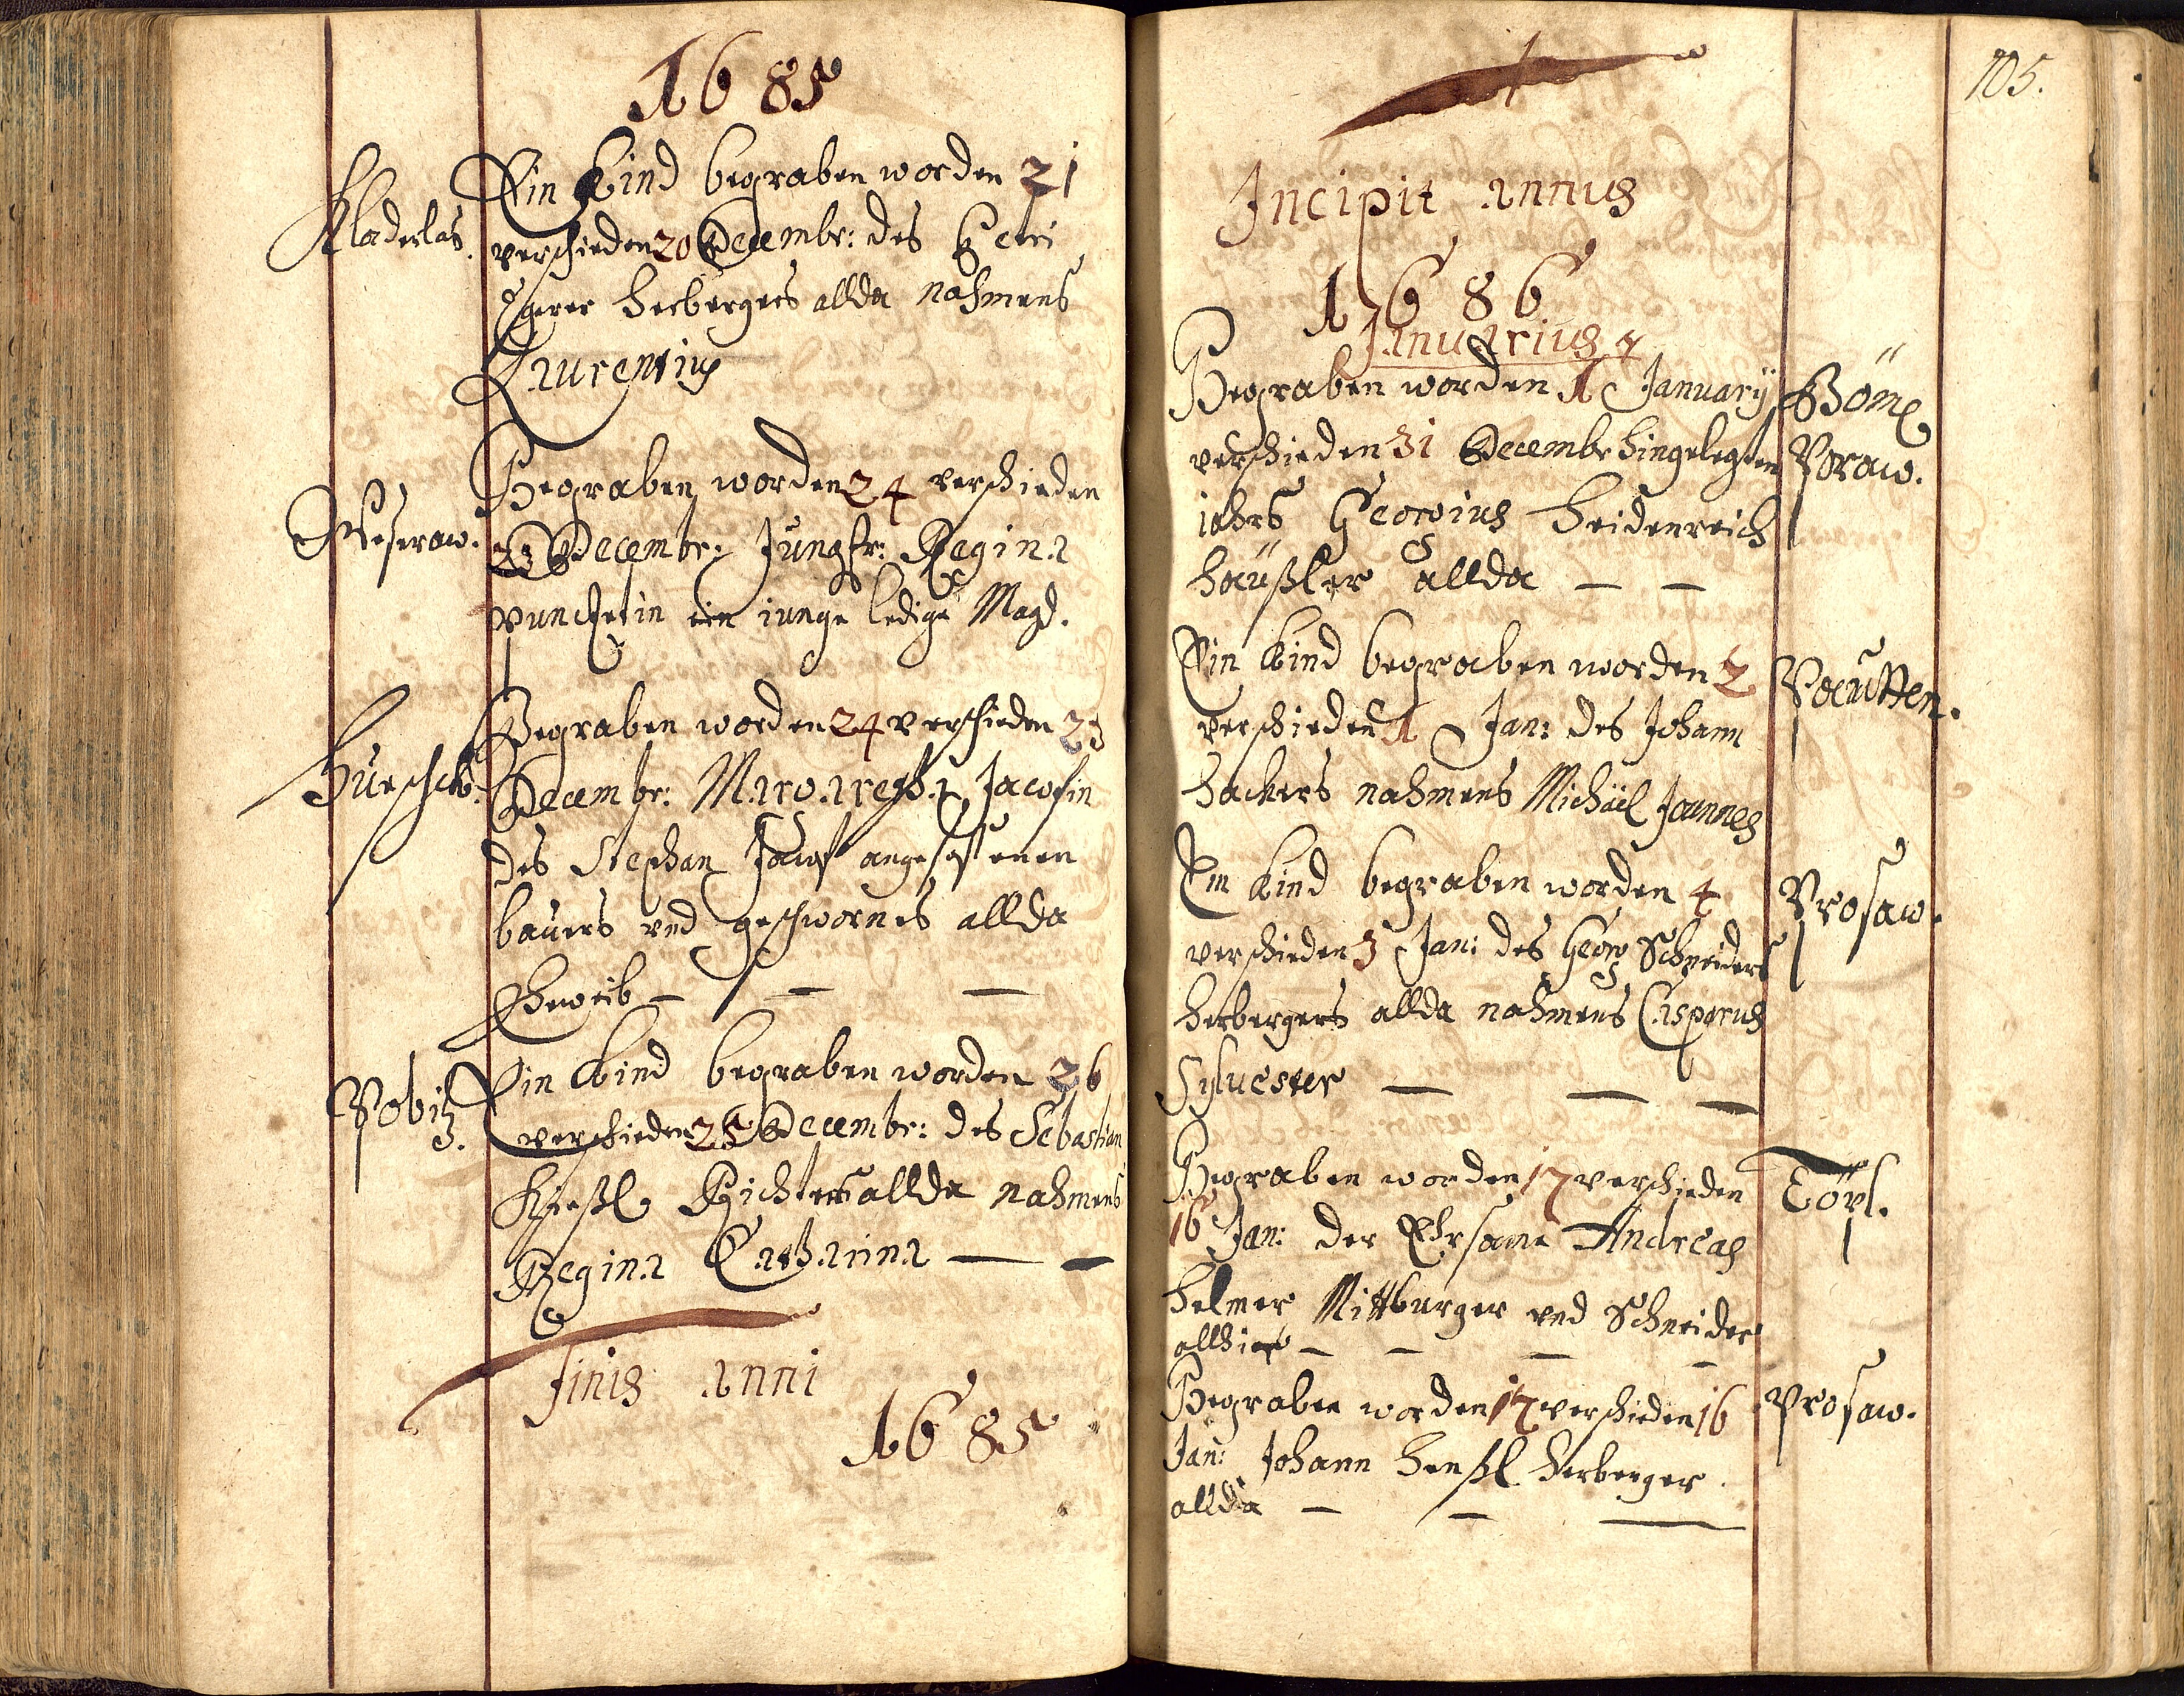 1685
Kladerlas.
Ein Kind begraben worden 21
verschieden 20 Decembr: des Petri
herbergers allda nahmens
Laurentius
Weseraw.
Begraben worden 24 verschieden
23 Decembr: Jungfr: Regina
ein iunge ledige Magd.
Begraben worden 24 verschieden 23
Decembr: Margaretha Jacobin
des Stephan Jacob angesessenen
bauers vnd geschwornes allda
Eheweib — — —
Pobitz.
Ein Kind begraben worden 26
verschieden 25 Decembr: des Sebastian
Richters allda nahmens
Regina Catharina — —
finis anni
1685
105.
Incipit annus
1686
Januarius
Begraben worden 1 January
Böm
Poraw.
verschieden 31 Decembr hingelegten
iahrs Georgius Heidenreich
häußler allda — —
Ein Kind begraben worden 2
Pautten.
verschieden 1 Jan: des Johann
Hackers nahmens Michäel Joannes
Ein Kind begraben worden 4
Prosaw.
verschieden 3 Jan: des Georg Schneiders
herbergers allda nahmens Casparus
Syluester — — —
Begraben worden 17 verschieden
Töpl.
16 Jan: der Ehrsame Andreas
Helmer Mittburger vnd Schneider
allhier — — — —
Begraben worden 17 verschieden 16
Prosaw.
Jan: Johann Henßl Herberger
allda — — —